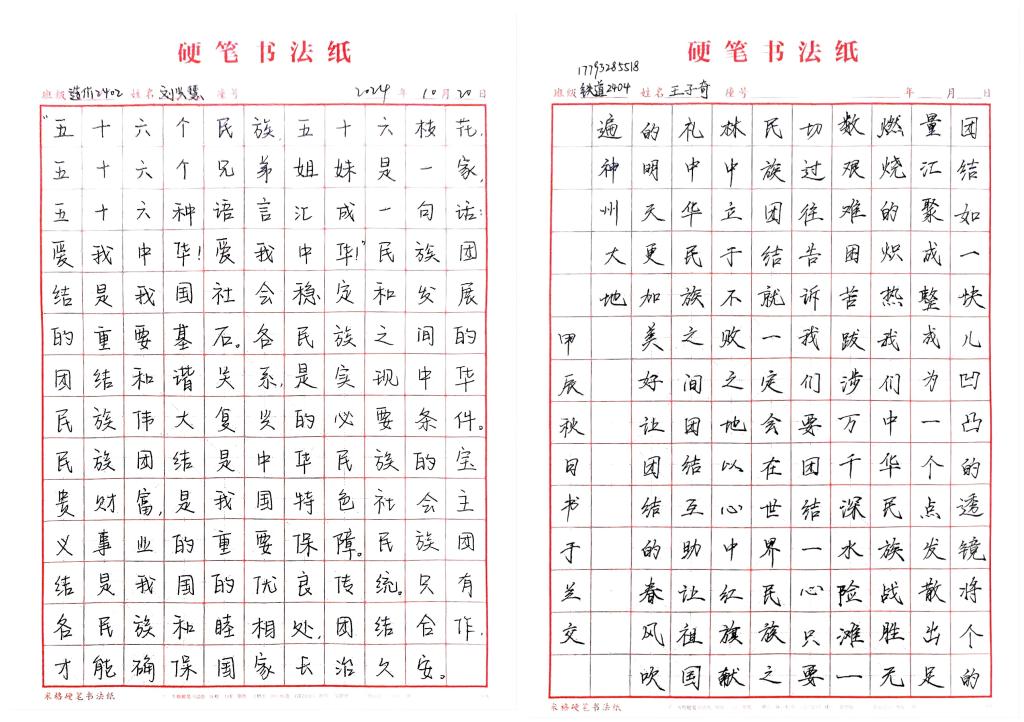 硬笔书法纸
班级 造价2402 姓名 刘兴慧 座号 2024年10月20日
“五十六个民族,五十六枝花,
五十六个兄弟姐妹是一家,
五十六种语言汇成一句话:
爱我中华!爱我中华!”民族团
结是我国社会稳定和发展
的重要基石。各民族之间的
团结和谐关系,是实现中华
民族伟大复兴的必要条件。
民族团结是中华民族的宝
贵财富,是我国特色社会主
义事业的重要保障。民族团
结是我国的优良传统。只有
各民族和睦相处,团结合作,
才能确保国家长治久安。
米格硬笔书法纸
硬笔书法纸
17793285518
班级 铁道2404 姓名 王子奇 座号 年 月 日
团结如一块儿凹凸的透镜将个的
量汇聚成整成为一个点发散出足
燃烧的炽热我们中华民族战胜无
数艰难困苦跋涉万千深水险滩一
切过往告诉我们要团结一心只要
民族团结就一定会在世界民族之
林中立于不败之地以心中红旗献
礼中华民族之间团结互助让祖国
的明天更加美好让团结的春风吹
遍神州大地
甲辰秋日书于兰交
米格硬笔书法纸